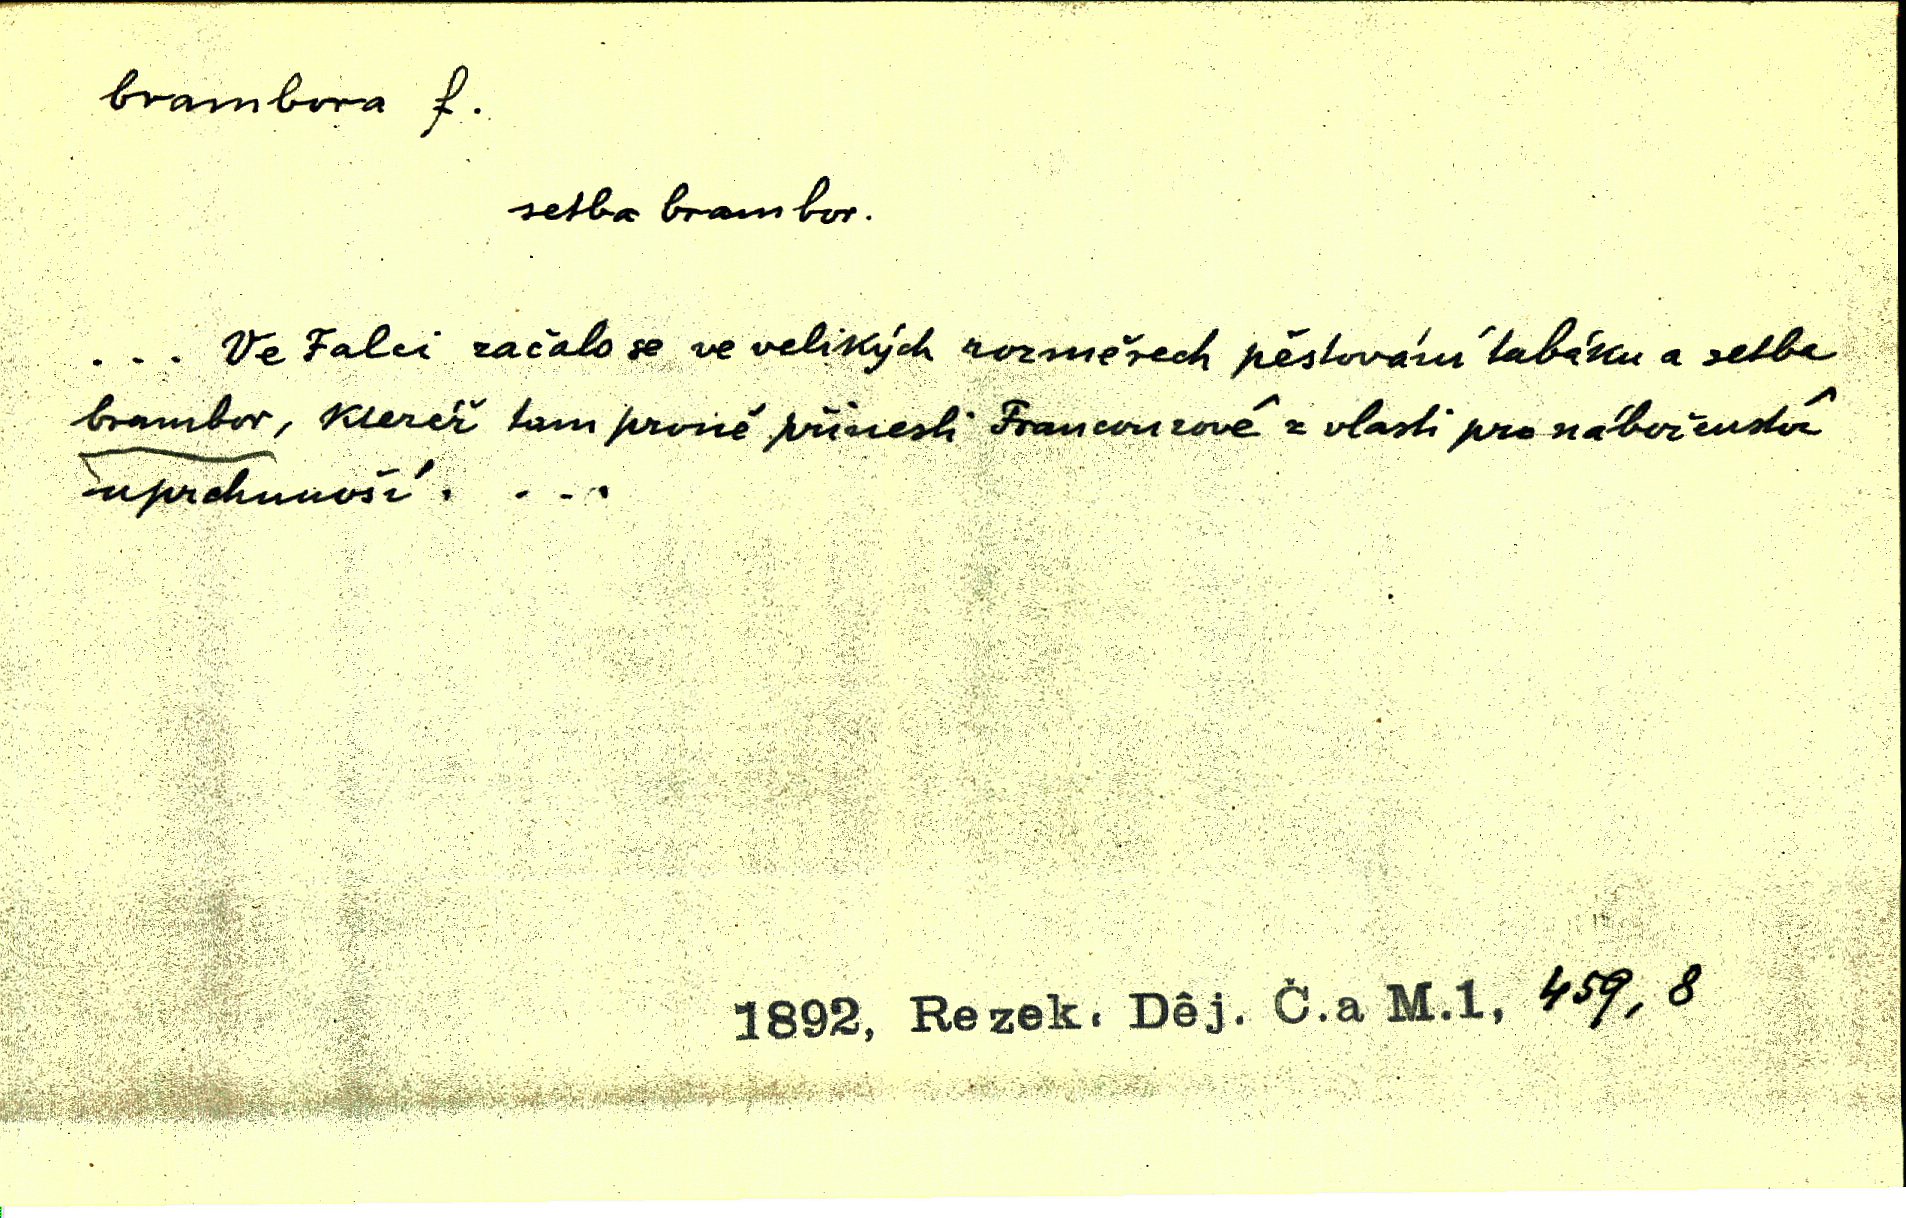 brambora f.
setba brambor.
... Ve Falci začalo se ve velikých rozměrech pěstování tabáku a setba
brambor, kteréž tam prvně přinesli Francouzové z vlasti pro náboženství
uprchnuvší. ...
1892, Rezek. Děj. Č.a M.1, 459, 8